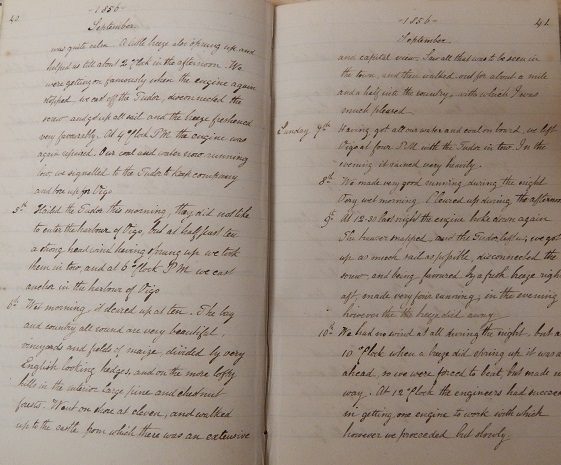 40.
-1856-
September.
was quite calm. A little breeze also sprung up and
helped us till about 2 o'Clock in the afternoon. We
were getting on famously when the engine again
stopped, we cast off the Tudor, disconnected the
screw and got up all sail and the breeze freshened
very favorably. At 4 o'Clock P.M. the engine was
again repaired. Our coal and water now running
low, we signalled to the Tudor to keep company
and bore up for Vigo
5th Hailed the Tudor this morning, they did not like
to enter the harbour of Vigo, but at half past ten
a strong head wind having sprung up we took
them in tow, and at 6 o'Clock P.M. we cast
anchor in the harbour of Vigo
6th Wet morning, it cleared up at ten. The bay
and country all round are very beautiful.
vineyards and fields of maize, divided by very
English looking hedges, and on the more lofty
hills in the interior large pine and chestnut
forests. Went on shore at eleven, and walked
up to the castle, from which there was an extensive
-1856-
41.
September.
and capital view. Saw all that was to be seen in
the town, and then walked out for about a mile
and a half into the country, with which I was
much pleased
Sunday 7th Having got all our water and coal on board, we left
Vigo at four P.M. with the Tudor in tow. In the
evening it rained very heavily.
8th We made very good running during the night
Very wet morning. Cleared up during the afternoon
9th At 12-30 last night the engine broke down again
The hawser snapped, and the Tudor left us, we got
up as much sail as possible, disconnected the
screw, and being favoured by a fresh breeze right
aft, made very fair running, in the evening
however the breeze died away
10th We had no wind at all during the night, but at
10 o'Clock when a breeze did spring up, it was a
ahead, so we were forced to beat, but made n
way. At 12 o'Clock the engineers had succeed
in getting one engine to work with which
however we proceeded but slowly.